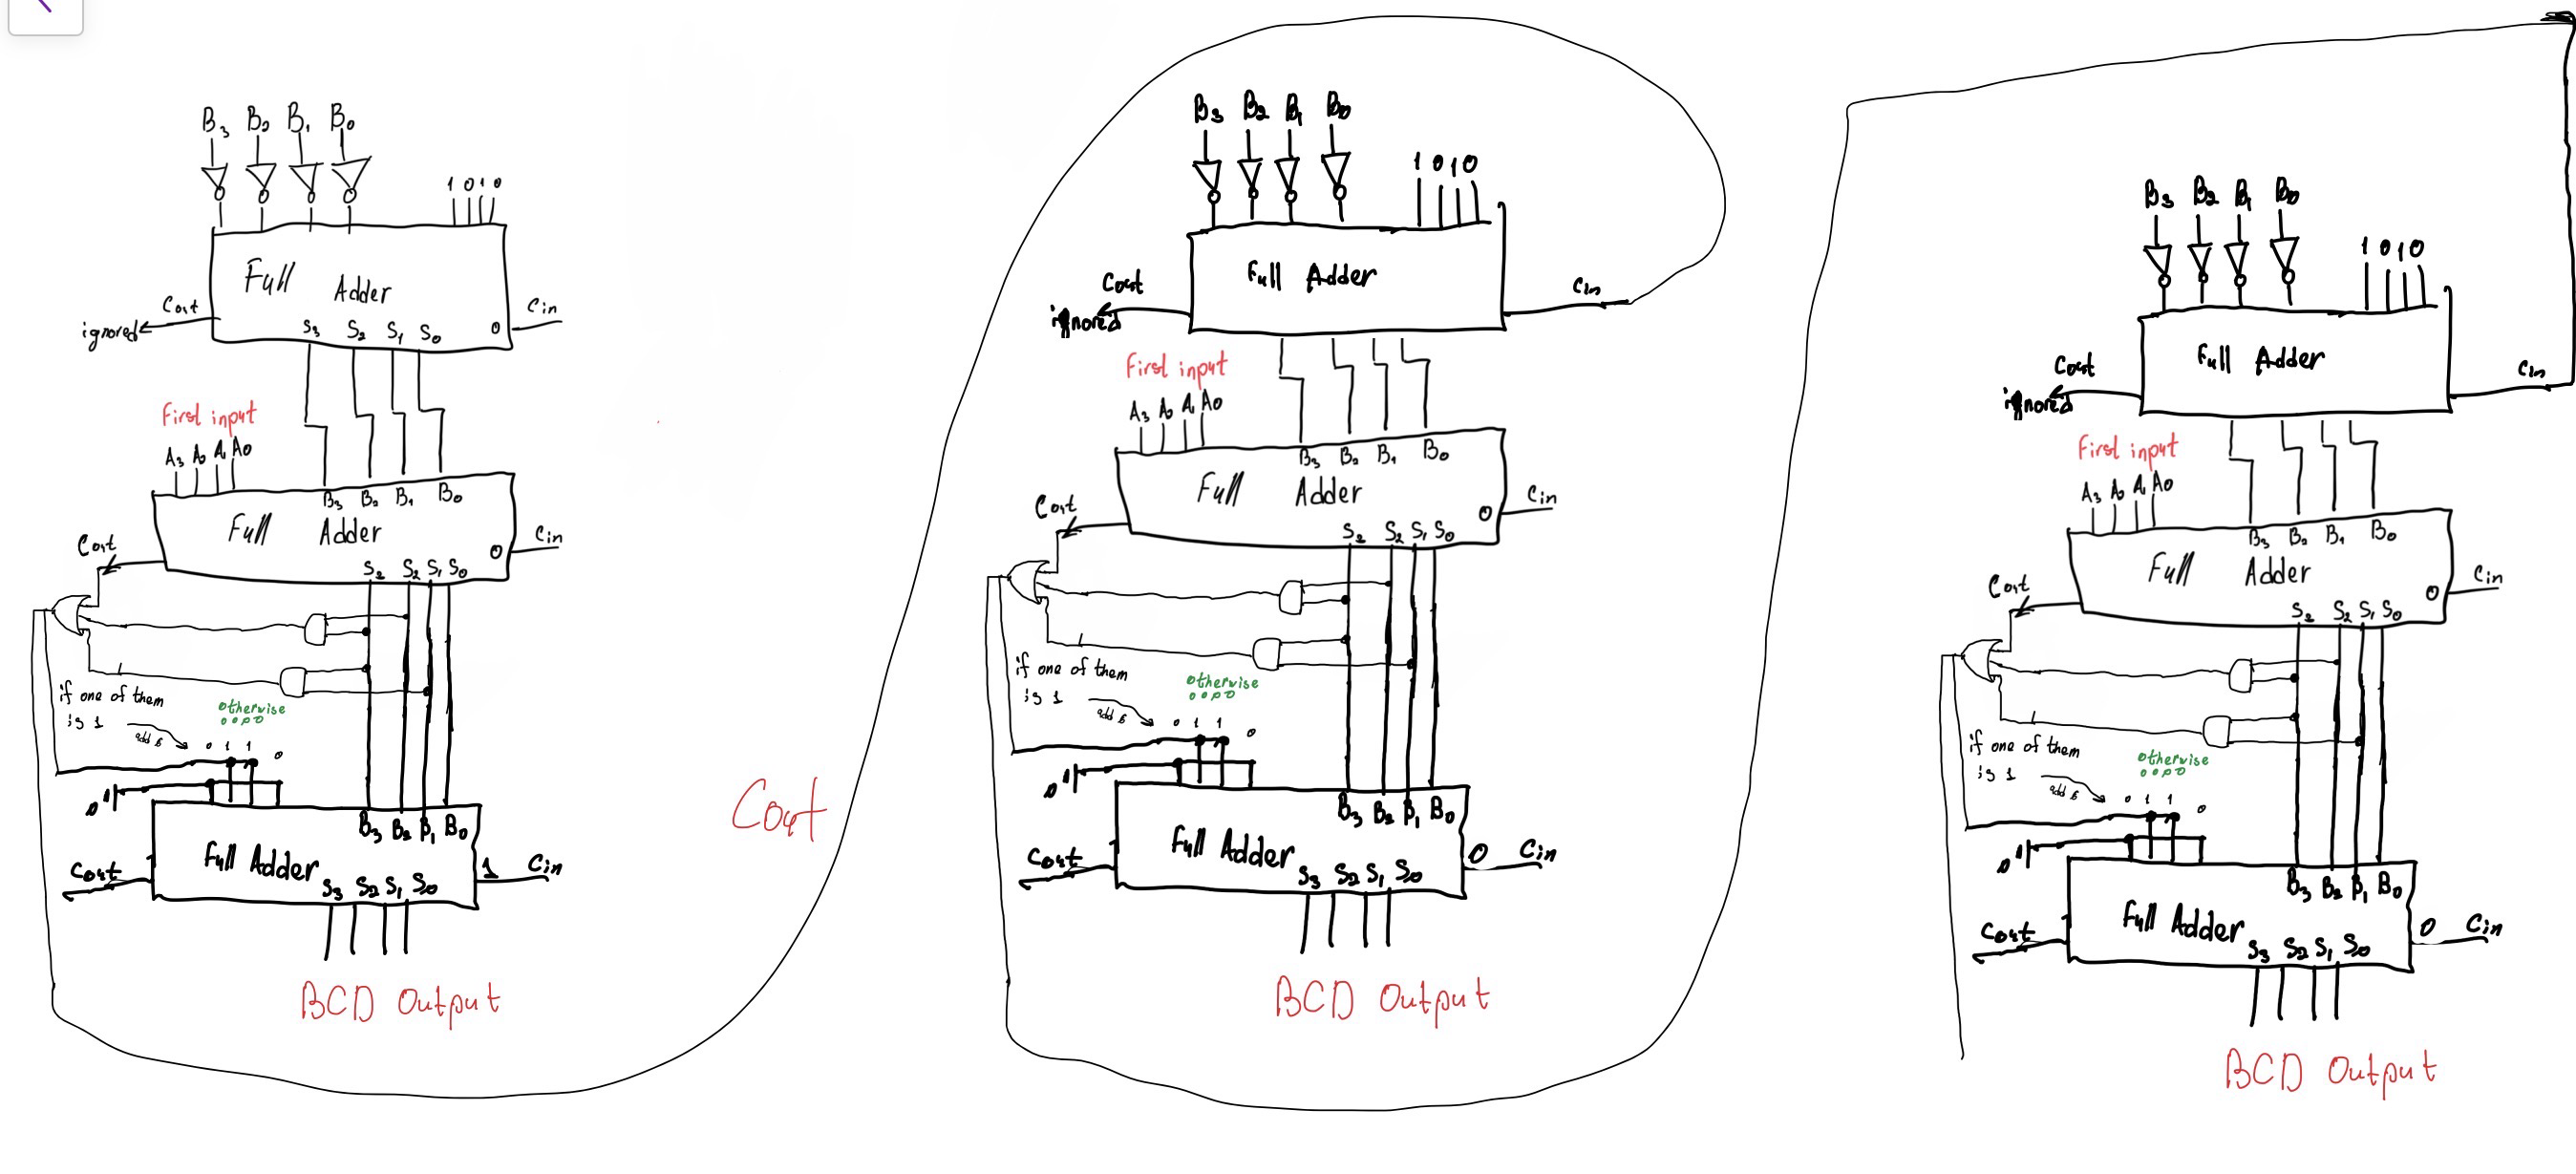 B3 B2 B1 B0
1 0 1 0
Full Adder
Cout
Cin
ignored
S3 S2 S1 S0
0
First input
A3 A2 A1 A0
B3 B2 B1 B0
Full Adder
Cout
0 Cin
S3 S2 S1 S0
if one of them
is 1
add 6
otherwise
0000
0 1 1 0
0
B3 B2 B1 B0
Full Adder
Cout
1 Cin
S3 S2 S1 S0
BCD Output
Cout
B3 B2 B1 B0
1 0 1 0
Full Adder
Cout
Cin
ignored
First input
A3 A2 A1 A0
B3 B2 B1 B0
Full Adder
Cout
0 Cin
S3 S2 S1 S0
if one of them
is 1
add 6
otherwise
0000
0 1 1 0
0
B3 B2 B1 B0
Full Adder
Cout
0 Cin
S3 S2 S1 S0
BCD Output
B3 B2 B1 B0
1 0 1 0
Full Adder
Cout
Cin
ignored
First input
A3 A2 A1 A0
B3 B2 B1 B0
Full Adder
Cout
0 Cin
S3 S2 S1 S0
if one of them
is 1
add 6
otherwise
0000
0 1 1 0
0
B3 B2 B1 B0
Full Adder
Cout
0 Cin
S3 S2 S1 S0
BCD Output